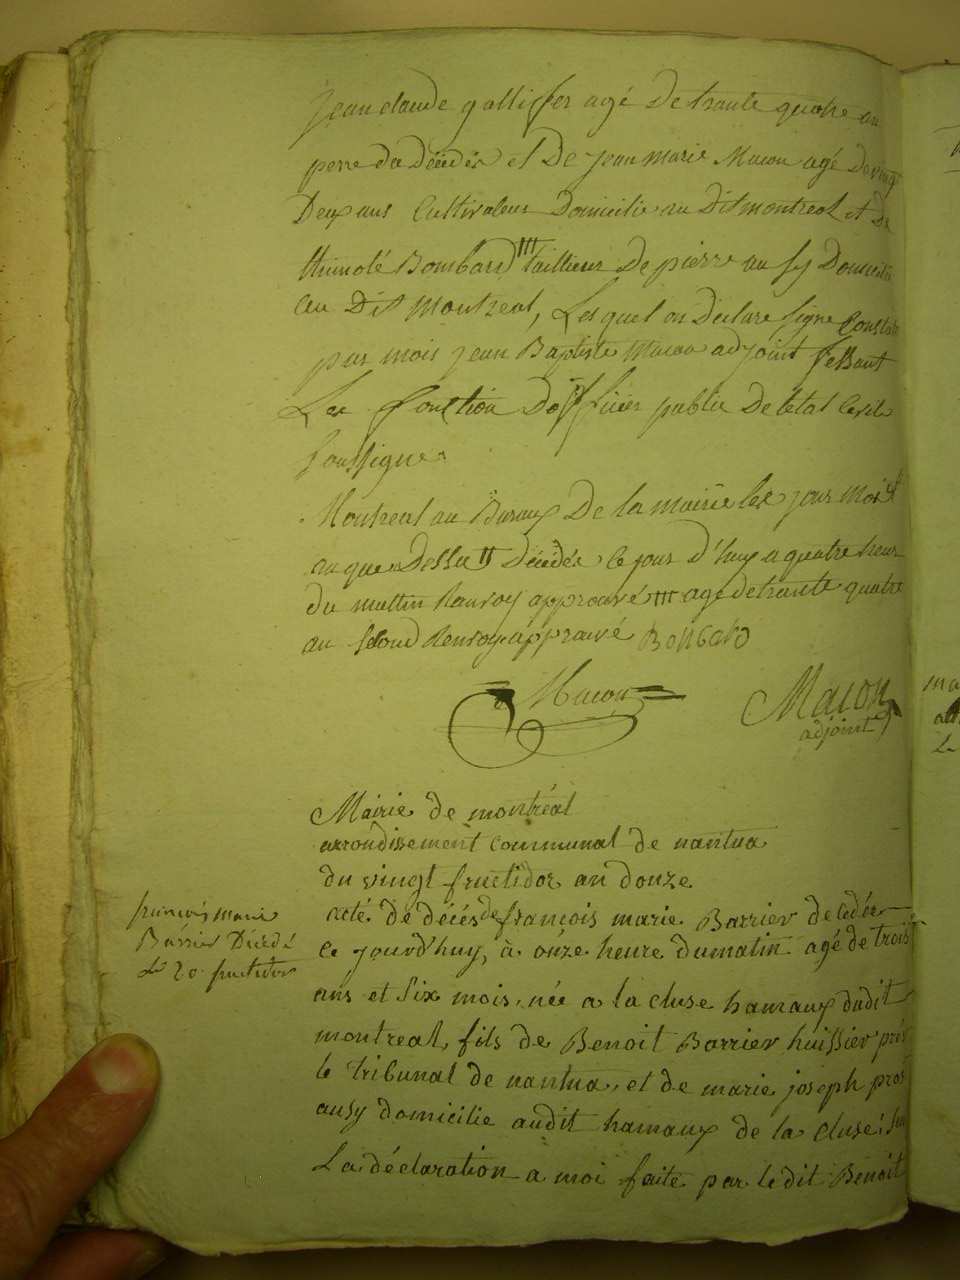 jean claude gallisfer agé De trante quatre an
pere du Décédés et De jean marie Macon agé De vingt
Deux ans Cultivateur Domicilie au Dit montreal et De
thimolé Bombard III tailleur De pierre au sy Domicilie
au Dit Montreal, Les quel on Déclare signe Constate
par mois jean Baptiste Macon adjoint fessant
Les fonction Dofficier public De l'état Civile
soussigne
Montreal au Buraux De la mairie les jour mois et
an que Dessu II Décédés le jour d'huy a quatre heur
du mattin Ranvoy approuvé III age de trante quatre
an second Renvoy approuvé BONBARD
Macon Macon
adjoint
Mairie de montréal
arrondissement communal de nantua
du vingt fructidor an douze
acté de décés de françois marie Barrier décédér
Ce jourd'huy, à onze heure du matin agé de trois
ans et six mois, née a la cluse hamaux dudit
montreal, fils de Benoit Barrier huissier prés
le tribunal de nantua, et de marie joseph prost
ausy domicilie audit hamaux de la cluse; sur
La déclaration a moi faite par le dit Benoit
françois marie
Barrier Décédé
Le 20 fructidor